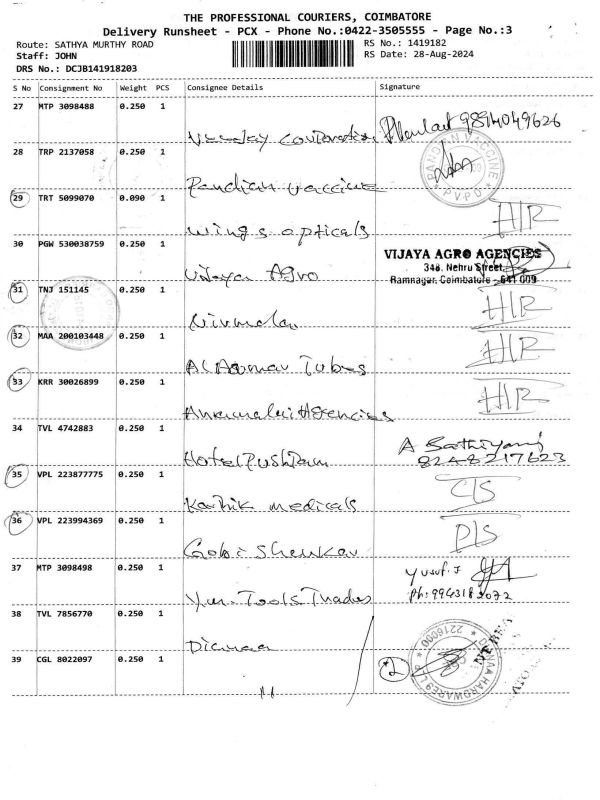 THE PROFESSIONAL COURIERS, COIMBATORE
Delivery Runsheet - PCX - Phone No.:0422-3505555 - Page No.:3
Route: SATHYA MURTHY ROAD RS No.: 1419182
Staff: JOHN RS Date: 28-Aug-2024
DRS No.: DCJB141918203
S No Consignment No Weight PCS Consignee Details Signature
27 MTP 3098488 0.250 1
9894049626
28 TRP 2137058 0.250 1
Pandian vaccine
PANDIAN VACCINE
PVPD
29 TRT 5099070 0.090 1
wings opticals H/R
30 PGW 530038759 0.250 1
Vijaya Agro
VIJAYA AGRO AGENCIES
348, Nehru Street,
Ramnagar, Coimbatore - 641 009
31 TNJ 151145 0.250 1
Nirmala H/R
32 MAA 200103448 0.250 1
Tubes H/R
33 KRR 30026899 0.250 1
Annamalai Agencies H/R
34 TVL 4742883 0.250 1
Hotel Pushpam
A Sathiyani
8248217623
35 VPL 223877775 0.250 1
Karthik medicals C/S
36 VPL 223994369 0.250 1
Gobi Shankar D/S
37 MTP 3098498 0.250 1
Tools Trades
Yusuf. J
38 TVL 7856770 0.250 1
39 CGL 8022097 0.250 1
2